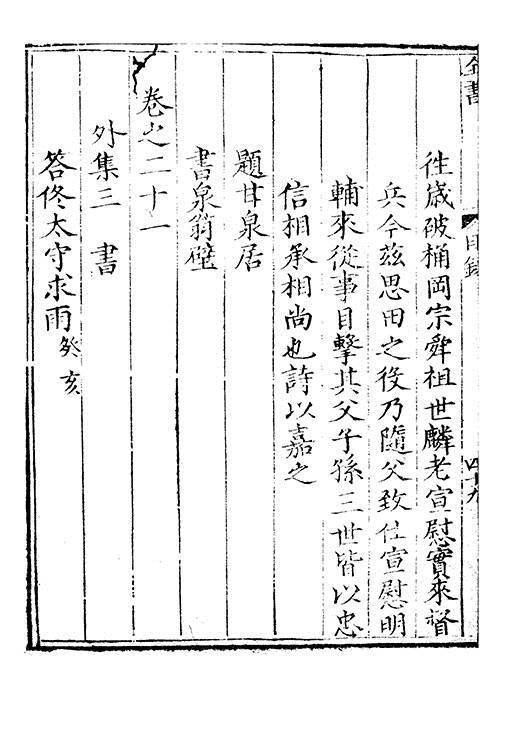 全書
目錄
四十九
往歲破桶岡宗舜祖世麟老宣慰實來督
兵今茲思田之役乃隨父致仕宣慰明
輔來從事目擊其父子孫三世皆以忠
信相承相尚也詩以嘉之
題甘泉居
書泉翁壁
卷之二十一
外集三 書
答佟太守求雨 癸亥